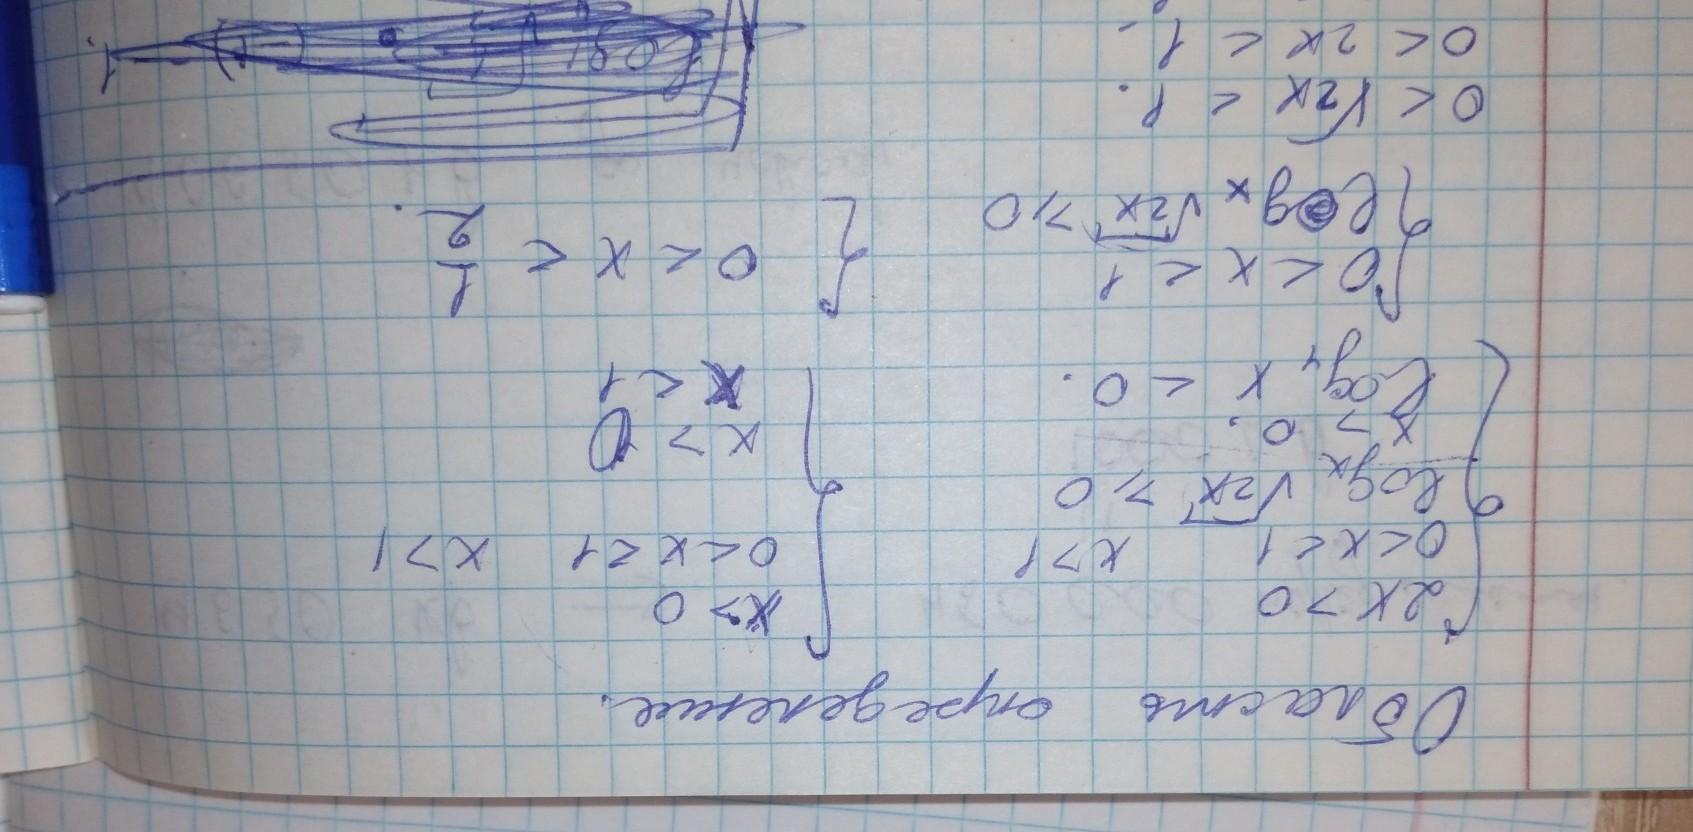 Область определение.
2x > 0
0 < x < 1 x > 1
logₓ √2x ≥ 0
x > 0.
log₄ x < 0.
x > 0
0 < x < 1 x > 1
x > 0
x < 1
0 < x < 1
logₓ √2x ≥ 0
0 < x < 1/2.
0 < √2x < 1.
0 < 2x < 1.